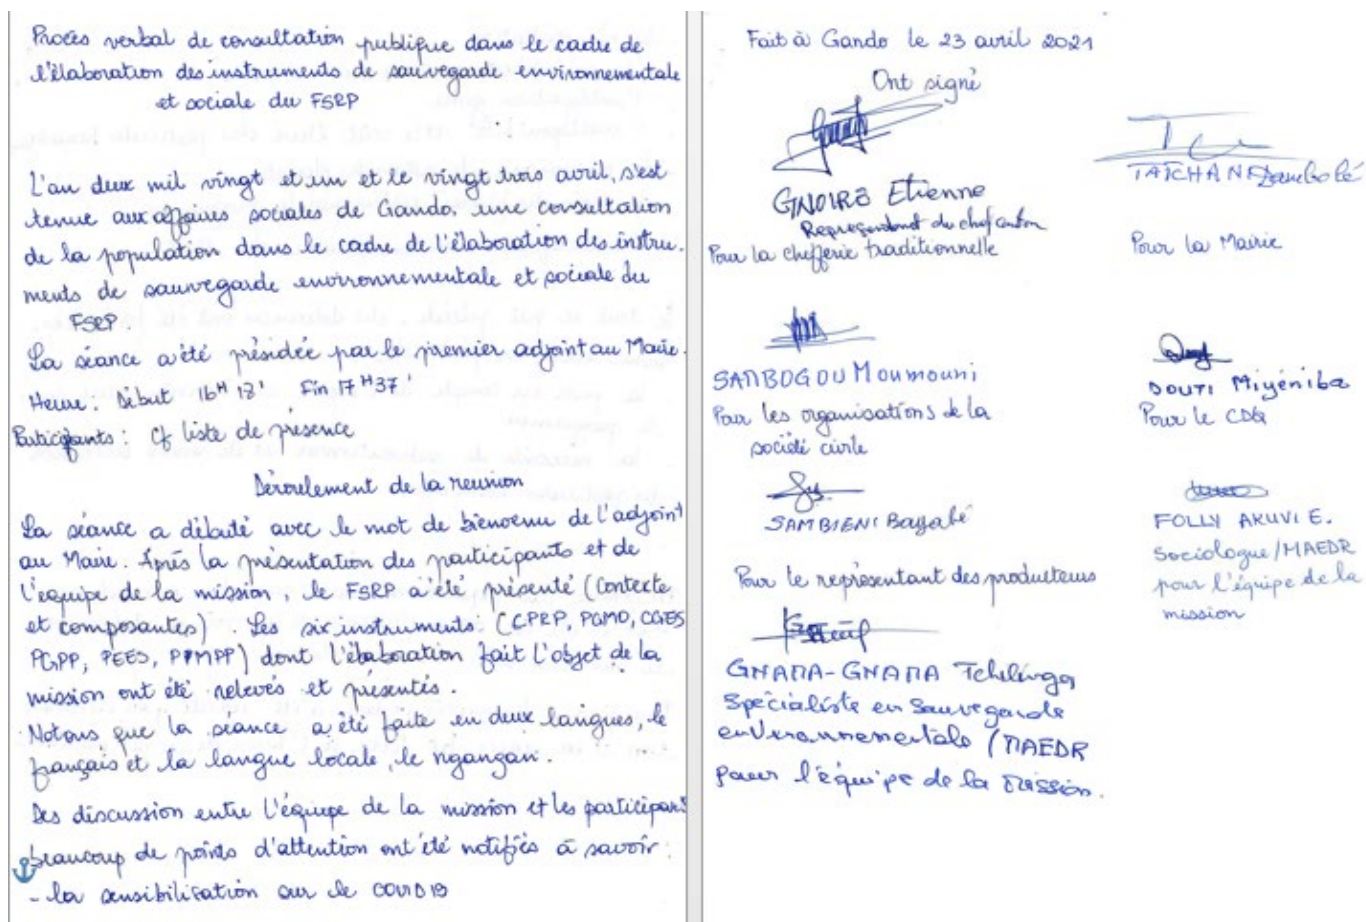 Procès verbal de consultation publique dans le cadre de
l'élaboration des instruments de sauvegarde environnementale
et sociale du FSRP
L'an deux mil vingt et un et le vingt trois avril, s'est
tenue aux affaires sociales de Gando, une consultation
de la population dans le cadre de l'élaboration des instru-
ments de sauvegarde environnementale et sociale du
FSRP
La séance a été présidée par le premier adjoint au Maire.
Heure: Début 16H 13' Fin 17H37'
Participants: Cf liste de présence
Déroulement de la reunion
La séance a débuté avec le mot de bienvenu de l'adjoint
au Maire. Après la présentation des participants et de
l'équipe de la mission, le FSRP a été présenté (Contexte
et composantes). Les six instruments (CPRP, PGMO, CGES
PGPP, PEES, PPMPP) dont l'élaboration fait l'objet de la
mission ont été relevés et présentés.
Notons que la séance a été faite en deux langues, le
français et la langue locale, le ngangan.
Des discussion entre l'équipe de la mission et les participant
beaucoup de points d'attention ont été notifiés à savoir:
- la sensibilisation sur le COVID19
Fait à Gando le 23 avril 2021
Ont signé
GNOIRE Etienne
Représentant du chef canton
Pour la chefferie traditionnelle
Pour la Mairie
SAMBOGOU Moumouni
Pour les organisations de la
société civile
DOUTI Miyéniba
Pour le CDQ
SAMBIENI Bagabé
Pour le représentant des producteurs
FOLLY AKUVI E.
Sociologue/MAEDR
pour l'équipe de la
mission
GNAMA-GNAMA Tchilinga
Spécialiste en Sauvegarde
environnementale /MAEDR
pour l'équipe de la mission.